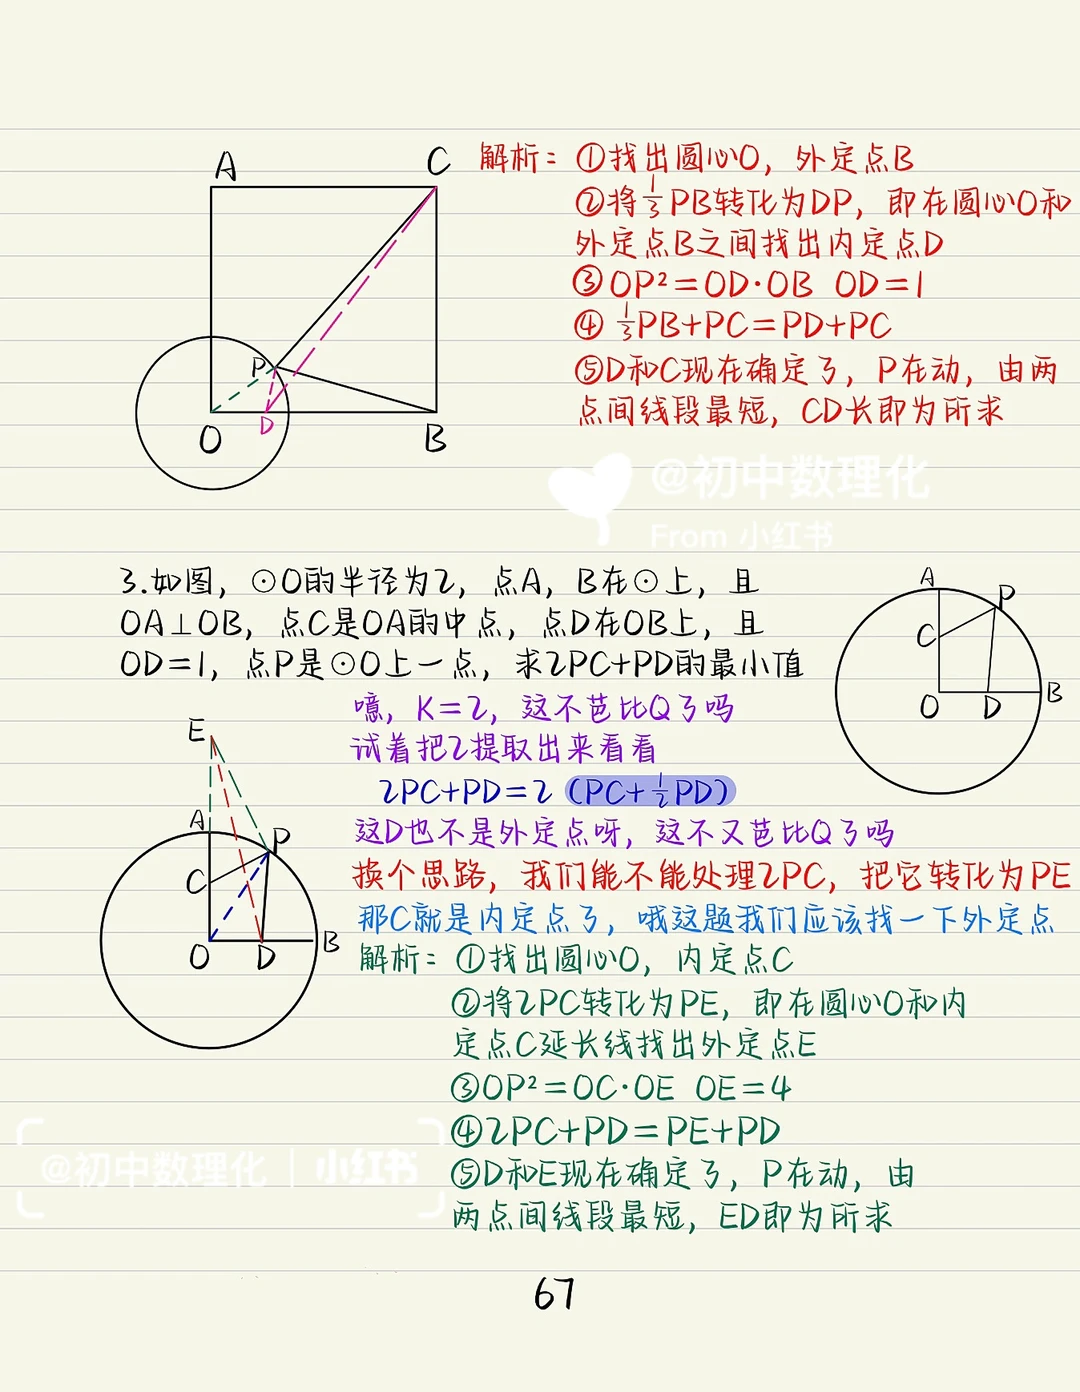 A
C
P
O
D
B
解析：①找出圆心O，外定点B
②将1/3PB转化为DP，即在圆心O和
外定点B之间找出内定点D
③OP²=OD·OB OD=1
④1/3PB+PC=PD+PC
⑤D和C现在确定了，P在动，由两
点间线段最短，CD长即为所求
@初中数理化
From 小红书
3.如图，⊙O的半径为2，点A，B在⊙上，且
OA⊥OB，点C是OA的中点，点D在OB上，且
OD=1，点P是⊙O上一点，求2PC+PD的最小值
A
P
C
O
D
B
噫，K=2，这不芭比Q了吗
试着把2提取出来看看
2PC+PD=2（PC+1/2PD）
这D也不是外定点呀，这不又芭比Q了吗
换个思路，我们能不能处理2PC，把它转化为PE
那C就是内定点了，哦这题我们应该找一下外定点
E
A
P
C
O
D
B
解析：①找出圆心O，内定点C
②将2PC转化为PE，即在圆心O和内
定点C延长线找出外定点E
③OP²=OC·OE OE=4
④2PC+PD=PE+PD
⑤D和E现在确定了，P在动，由
两点间线段最短，ED即为所求
@初中数理化 | 小红书
67